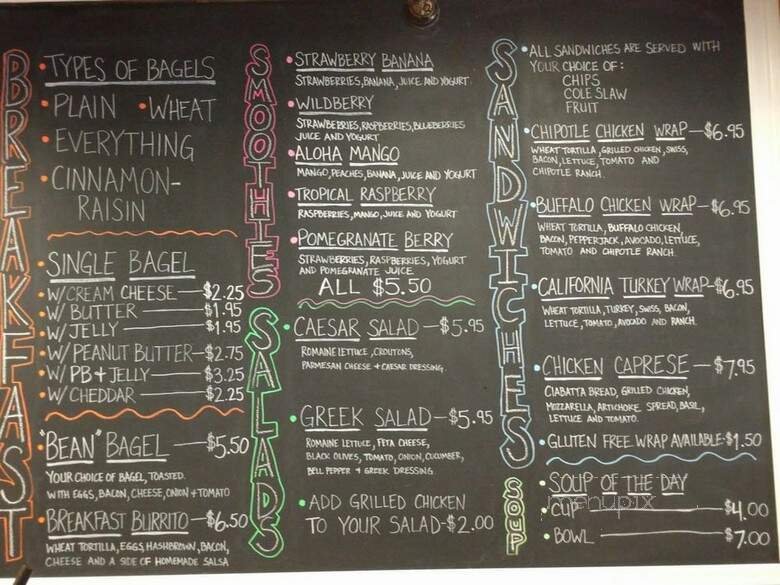 BREAKFAST
• TYPES OF BAGELS
• PLAIN • WHEAT
• EVERYTHING
• CINNAMON-
RAISIN
• SINGLE BAGEL
• W/CREAM CHEESE — $2.25
• W/ BUTTER — $1.95
• W/ JELLY — $1.95
• W/ PEANUT BUTTER — $2.75
• W/ PB + JELLY — $3.25
• W/ CHEDDAR — $2.25
• "BEAN" BAGEL — $5.50
YOUR CHOICE OF BAGEL, TOASTED.
WITH EGGS, BACON, CHEESE, ONION + TOMATO
• BREAKFAST BURRITO — $6.50
WHEAT TORTILLA, EGGS, HASHBROWN, BACON,
CHEESE AND A SIDE OF HOMEMADE SALSA
SMOOTHIES
• STRAWBERRY BANANA
STRAWBERRIES, BANANA, JUICE AND YOGURT
• WILDBERRY
STRAWBERRIES, RASPBERRIES, BLUEBERRIES
JUICE AND YOGURT
• ALOHA MANGO
MANGO, PEACHES, BANANA, JUICE AND YOGURT
• TROPICAL RASPBERRY
RASPBERRIES, MANGO, JUICE AND YOGURT
• POMEGRANATE BERRY
STRAWBERRIES, RASPBERRIES, YOGURT
AND POMEGRANATE JUICE
ALL $5.50
SALADS
• CAESAR SALAD — $5.95
ROMAINE LETTUCE, CROUTONS,
PARMESAN CHEESE + CAESAR DRESSING.
• GREEK SALAD — $5.95
ROMAINE LETTUCE, FETA CHEESE,
BLACK OLIVES, TOMATO, ONION, CUCUMBER,
BELL PEPPER + GREEK DRESSING
• ADD GRILLED CHICKEN
TO YOUR SALAD - $2.00
SANDWICHES
• ALL SANDWICHES ARE SERVED WITH
YOUR CHOICE OF:
CHIPS
COLE SLAW
FRUIT
• CHIPOTLE CHICKEN WRAP — $6.95
WHEAT TORTILLA, GRILLED CHICKEN, SWISS,
BACON, LETTUCE, TOMATO AND
CHIPOTLE RANCH.
• BUFFALO CHICKEN WRAP — $6.95
WHEAT TORTILLA, BUFFALO CHICKEN,
BACON, PEPPERJACK, AVOCADO, LETTUCE,
TOMATO AND CHIPOTLE RANCH
• CALIFORNIA TURKEY WRAP - $6.95
WHEAT TORTILLA, TURKEY, SWISS, BACON,
LETTUCE, TOMATO, AVOCADO AND RANCH.
• CHICKEN CAPRESE — $7.95
CIABATTA BREAD, GRILLED CHICKEN,
MOZZARELLA, ARTICHOKE SPREAD, BASIL,
LETTUCE AND TOMATO.
• GLUTEN FREE WRAP AVAILABLE - $1.50
SOUP
• SOUP OF THE DAY
menupix
• CUP — $4.00
• BOWL — $7.00